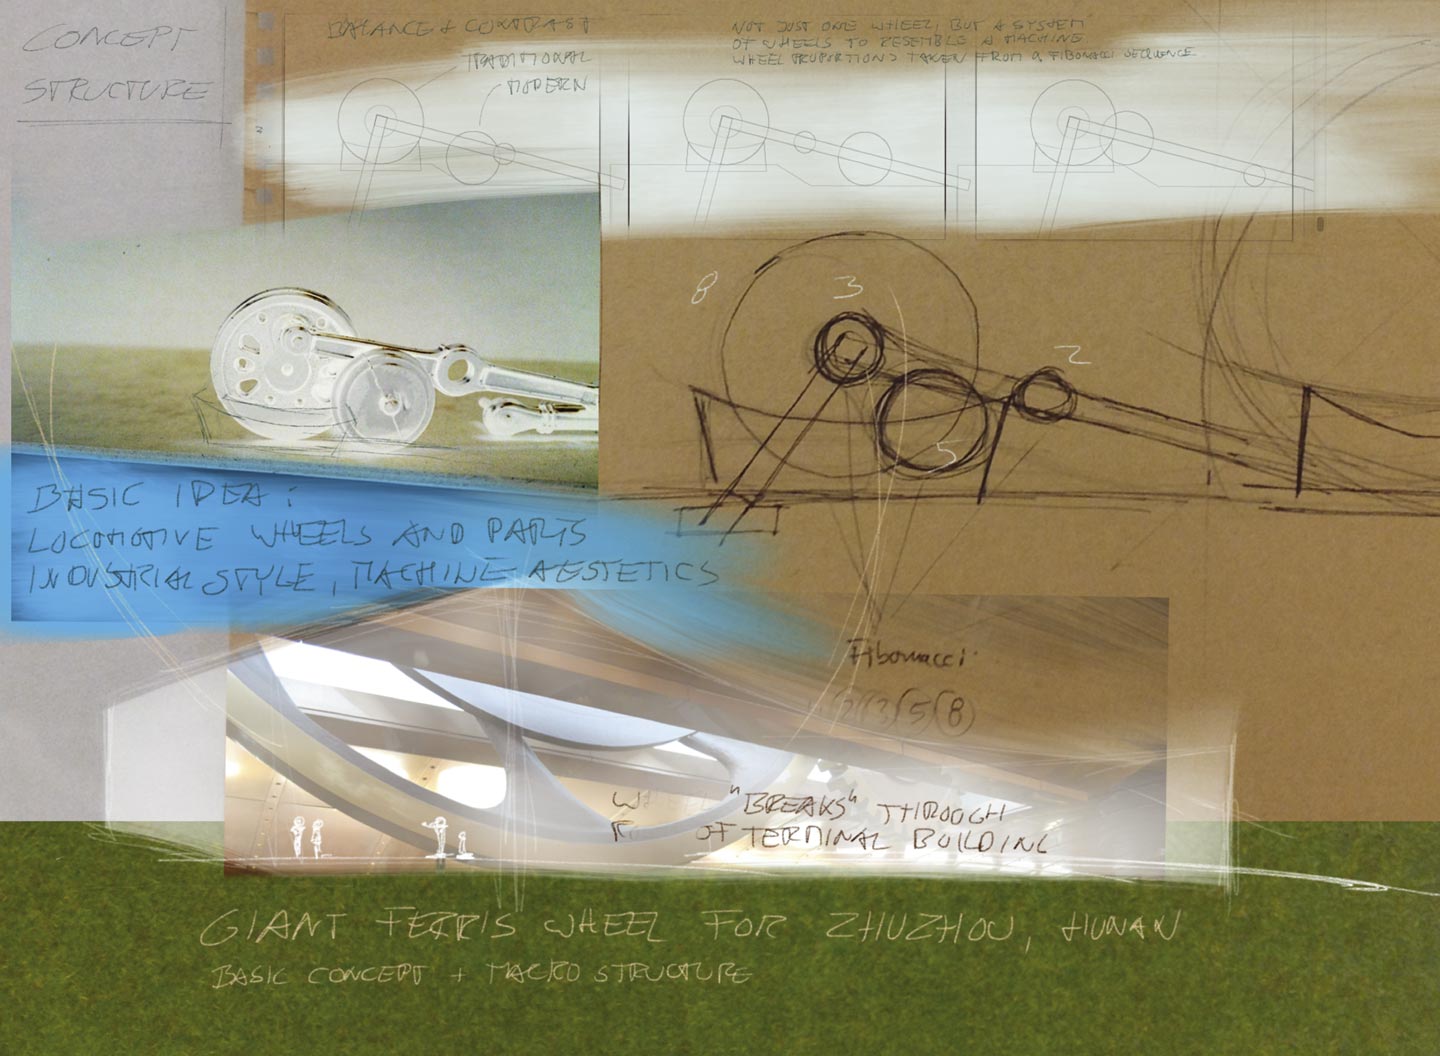 CONCEPT
STRUCTURE
BALANCE + CONTRAST
TRADITIONAL
MODERN
NOT JUST ONE WHEEL, BUT A SYSTEM
OF WHEELS TO RESEMBLE A MACHINE
WHEEL PROPORTIONS TAKEN FROM A FIBONACCI SEQUENCE
8
3
2
5
BASIC IDEA:
LOCOMOTIVE WHEELS AND PARTS
INDUSTRIAL STYLE, MACHINE AESTETICS
Fibonacci:
2 3 5 8
"BREAKS" THROUGH
OF TERMINAL BUILDING
GIANT FERRIS WHEEL FOR ZHUZHOU, HUNAN
BASIC CONCEPT + MACRO STRUCTURE